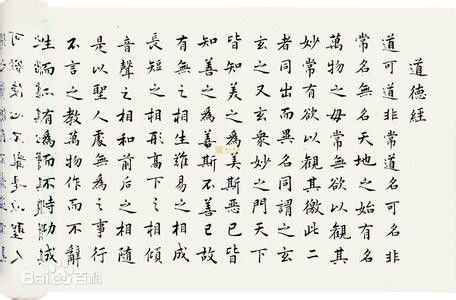 道德經
道可道非常道名可名非
常名無名天地之始有名
萬物之母常無欲以觀其
妙常有欲以觀其徼此二
者同出而異名同謂之玄
玄之又玄衆妙之門天下
皆知美之為美斯惡已皆
知善之為善斯不善已故
有無之相生難易之相成
長短之相形高下之相傾
音聲之相和前后之相隨
是以聖人處無為之事行
不言之教萬物作而不辭
而有為而功成
Baidu百科